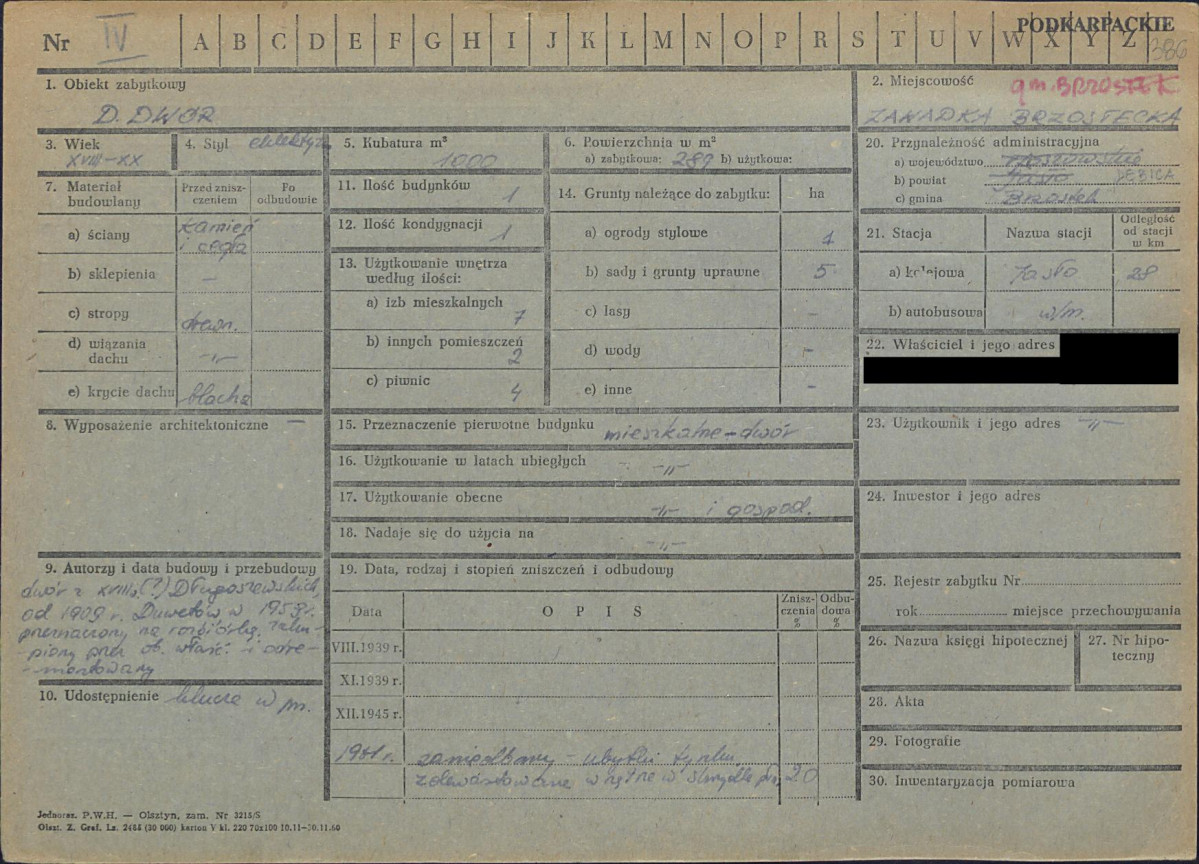 PODKARPACKIE
Nr IV A B C D E F G H I J K L M N O P R S T U V W X Y Z
386
1. Obiekt zabytkowy
D. DWÓR
2. Miejscowość gm. BRZOSTEK
ZAWADKA BRZOSTECKA
3. Wiek
XVIII-XX
4. Styl eklektyzm
5. Kubatura m³
1000
6. Powierzchnia w m²
a) zabytkowa: 289 b) użytkowa:
7. Materiał budowlany
Przed zniszczeniem
Po odbudowie
a) ściany kamień i cegła
b) sklepienia –
c) stropy drewn.
d) wiązania dachu -„-
e) krycie dachu blacha
8. Wyposażenie architektoniczne –
9. Autorzy i data budowy i przebudowy
dwór z XVIII w.(?) Długoszewskich,
od 1909 r. w 195 r.
przeznaczony na rozbiórkę, zaku-
-piony przez ob. właść. i odre-
-montowany
10. Udostępnienie klucze w m.
11. Ilość budynków
1
12. Ilość kondygnacji
1
13. Użytkowanie wnętrza
według ilości:
a) izb mieszkalnych
7
b) innych pomieszczeń
2
c) piwnic
4
14. Grunty należące do zabytku: ha
a) ogrody stylowe 1
b) sady i grunty uprawne 5
c) lasy –
d) wody –
e) inne –
15. Przeznaczenie pierwotne budynku mieszkalne – dwór
16. Użytkowanie w latach ubiegłych -„-
17. Użytkowanie obecne -„- i gospod.
18. Nadaje się do użycia na -„-
19. Data, rodzaj i stopień zniszczeń i odbudowy
Data
O P I S
Zniszczenia %
Odbudowa %
VIII.1939 r.
XI.1939 r.
XII.1945 r.
1981 r. zaniedbany – ubytki tynku,
zdewastowane wnętrze w skrzydle 20
20. Przynależność administracyjna
a) województwo rzeszowskie
b) powiat Jasło DĘBICA
c) gmina Brzostek
21. Stacja
Nazwa stacji
Odległość od stacji w km
a) kolejowa Jasło 28
b) autobusowa w/m.
22. Właściciel i jego adres
23. Użytkownik i jego adres -„-
24. Inwestor i jego adres
25. Rejestr zabytku Nr
rok miejsce przechowywania
26. Nazwa księgi hipotecznej
27. Nr hipoteczny
28. Akta
29. Fotografie
30. Inwentaryzacja pomiarowa
Jednoraz. P.W.H. — Olsztyn, zam. Nr 3215/S
Olszt. Z. Graf. Lz. 2485 (30 000) karton V kl. 220 70x100 10.11—30.11.60